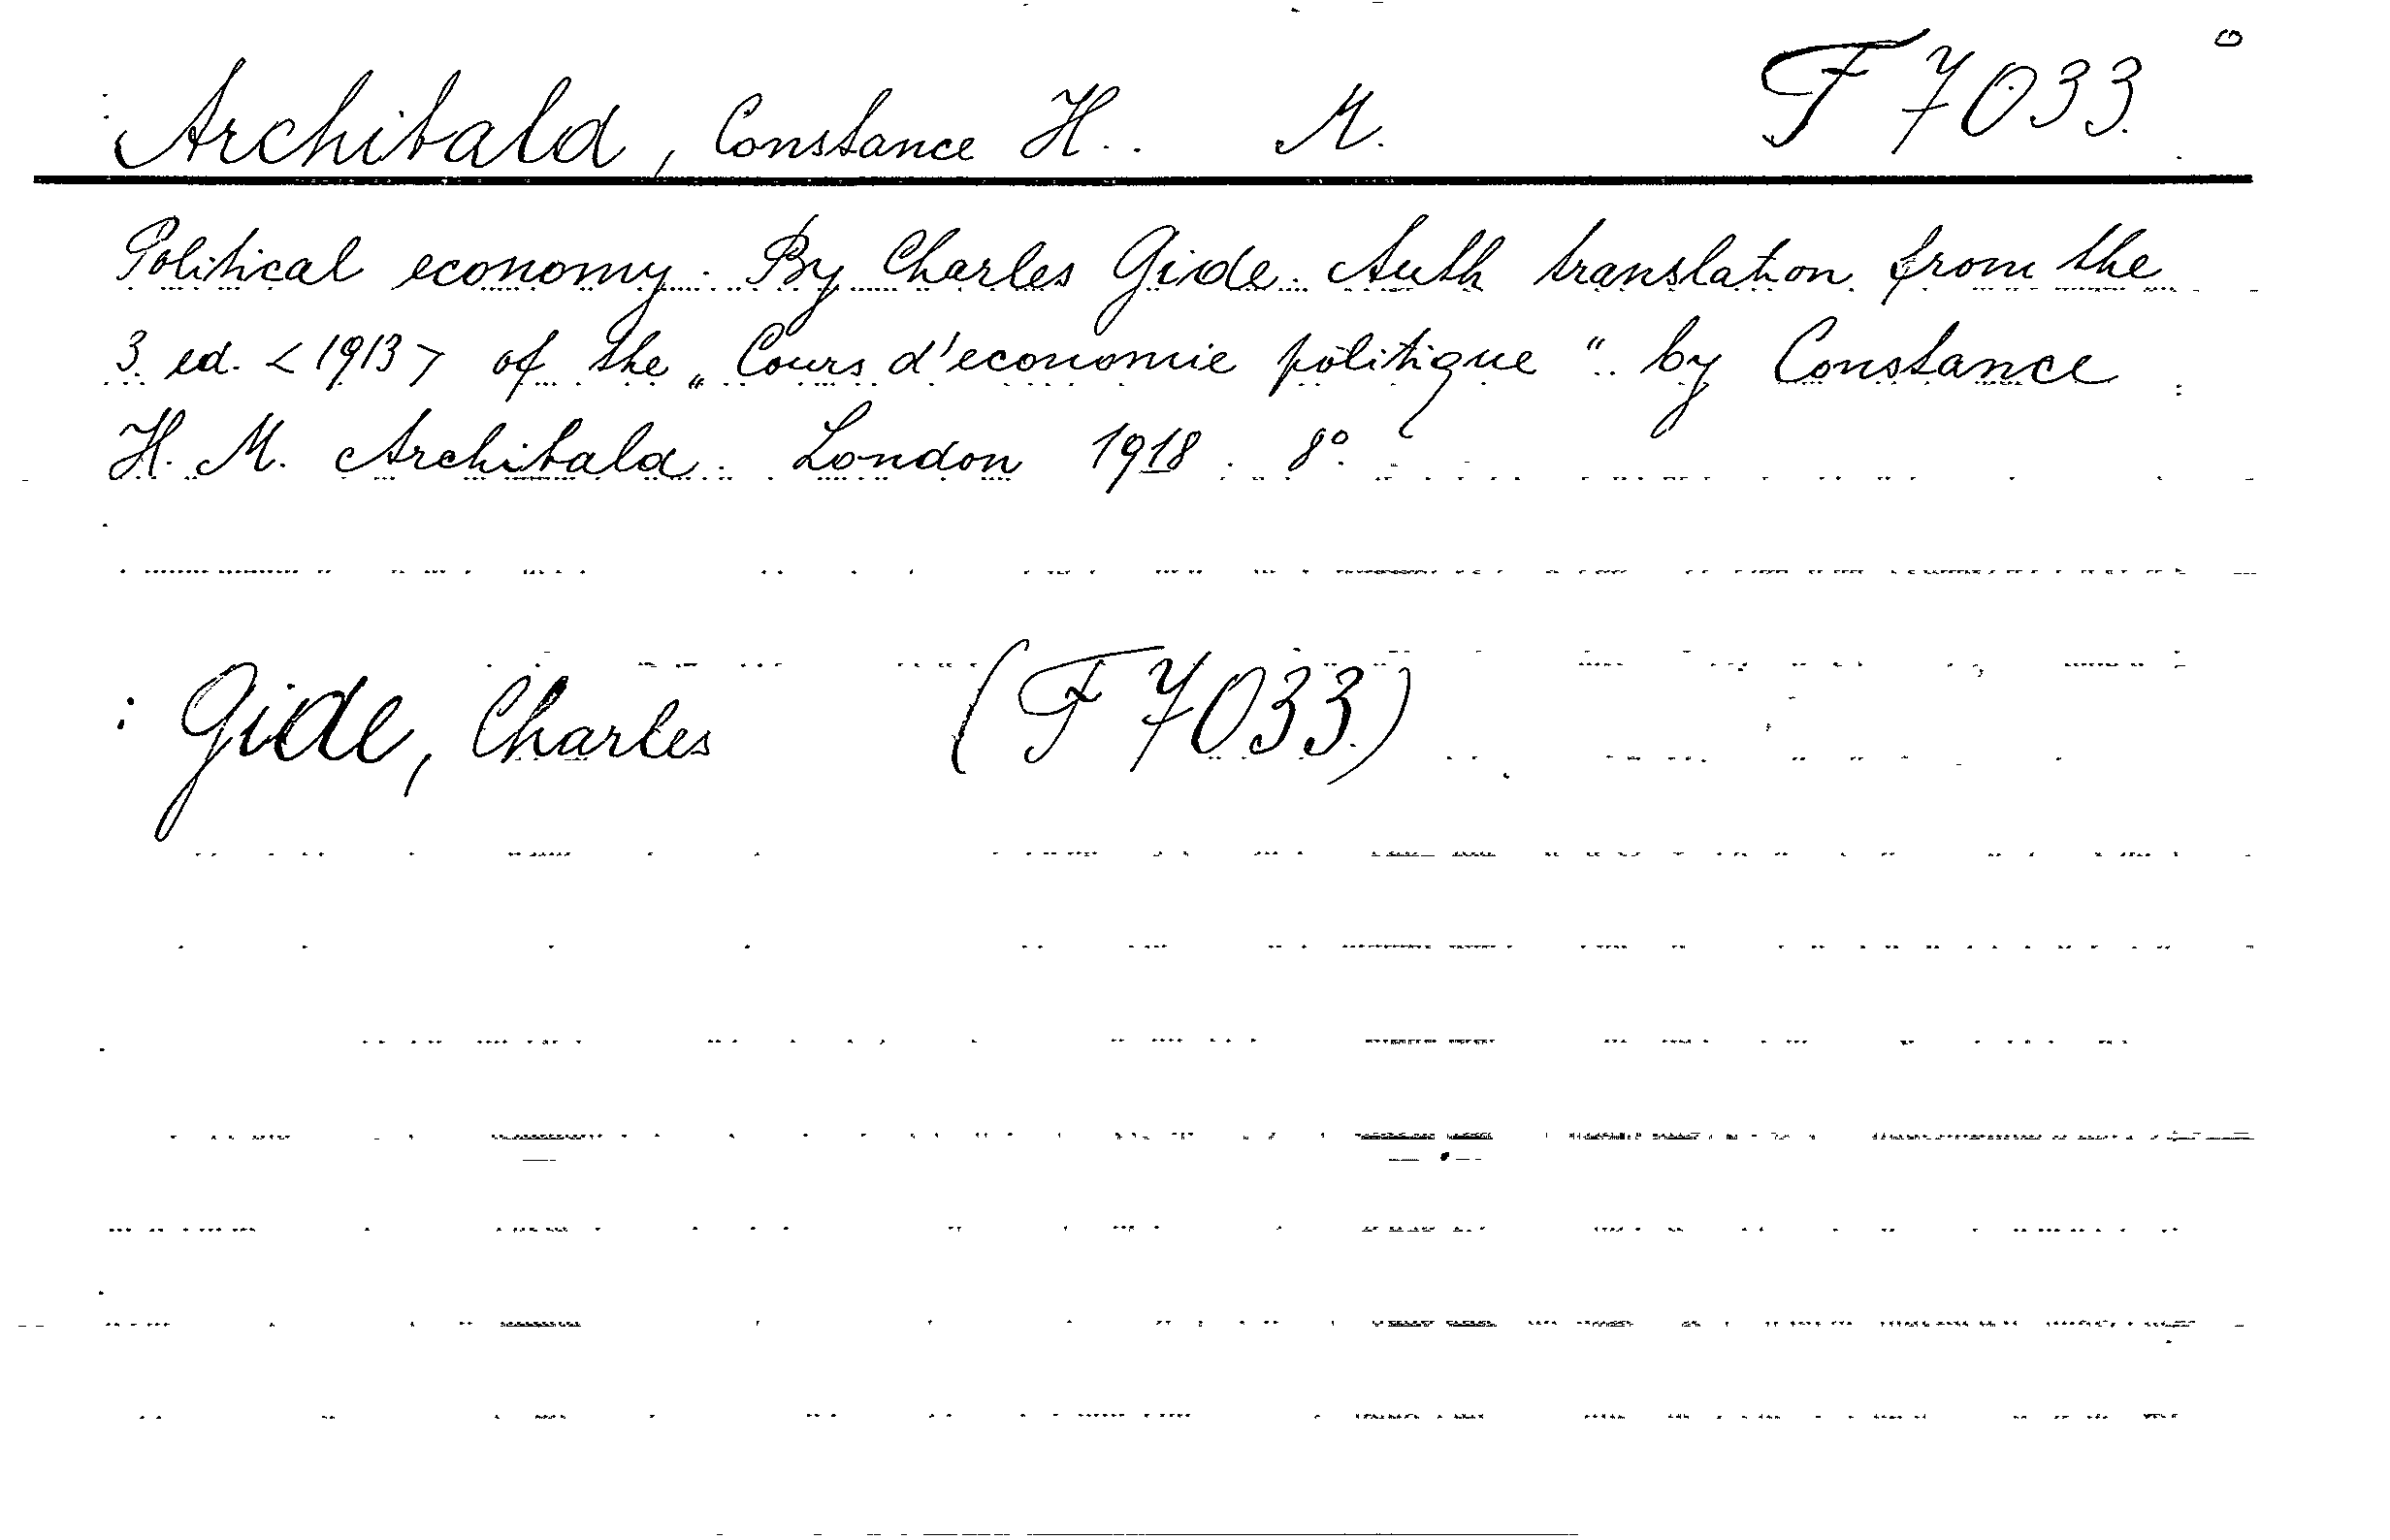 Archibald, Constance H. M. F 7033.
Political economy. By Charles Gide. Auth translation from the
3. ed. < 1913 > of the „Cours d'economie politique“ by Constance
H. M. Archibald. London 1918. 8°.
: Gide, Charles (F 7033.)